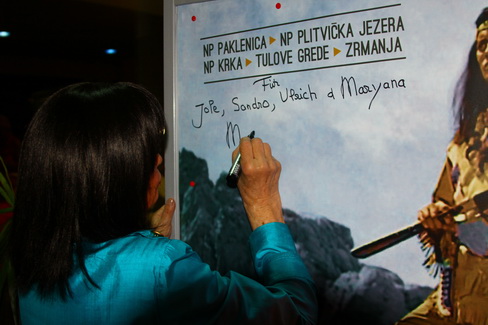 NP PAKLENICA ▸ NP PLITVIČKA JEZERA
NP KRKA ▸ TULOVE GREDE ▸ ZRMANJA
Für
Jole, Sandro, Ulrich & Maryana
M